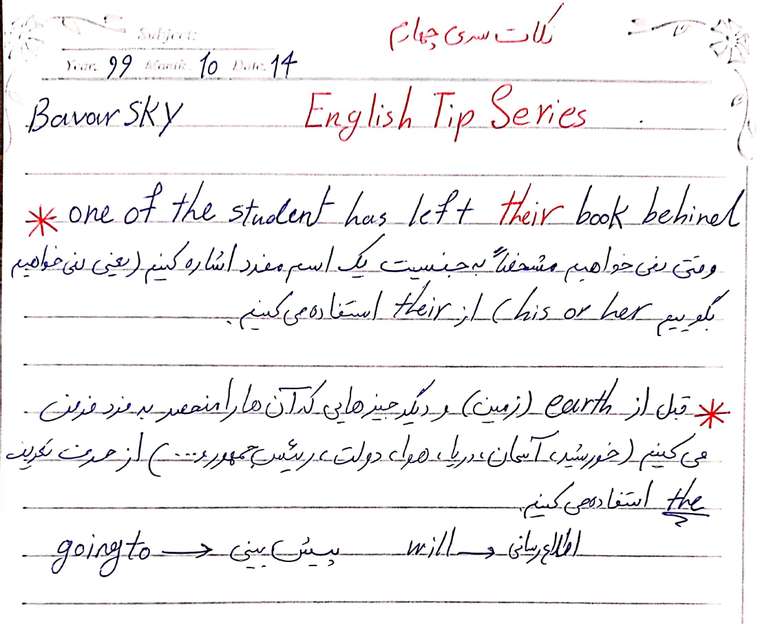 نکات سری چهارم
Subject:
Year: 99 Month: 10 Date: 14
BavarSKY English Tip Series
* one of the student has left their book behind
وقتی نمی خواهیم مشخصاً به جنسیت یک اسم مفرد اشاره کنیم (یعنی نمی خواهیم
بگوییم his or her) از their استفاده می کنیم.
* قبل از earth (زمین) و دیگر چیزهایی که آن ها را منحصر به فرد فرض
می کنیم (خورشید، آسمان، دریا، هوا، دولت، رییس جمهور و ....) از حرف تعریف
the استفاده می کنیم.
going to → پیش بینی will → اطلاع رسانی